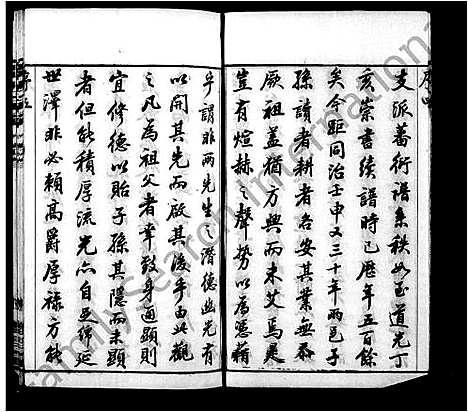 序四
支派蕃衍譜系秩如至道光丁
亥崇書續譜時已歷年五百餘
矣今距同治壬申又三十年兩邑子
孫讀者耕者各安其業無忝
厥祖蓋猶方興而未艾焉是
豈有煊赫之聲勢以為憑藉
乎謂非兩先生之潛德幽光有
以開其先而啟其後乎由此觀
之凡為祖父者幸致身通顯則
宜修德以貽子孫其隱而未顯
者但能積厚流光亦自足綿延
世澤非必賴高爵厚祿方能
FamilySearch International